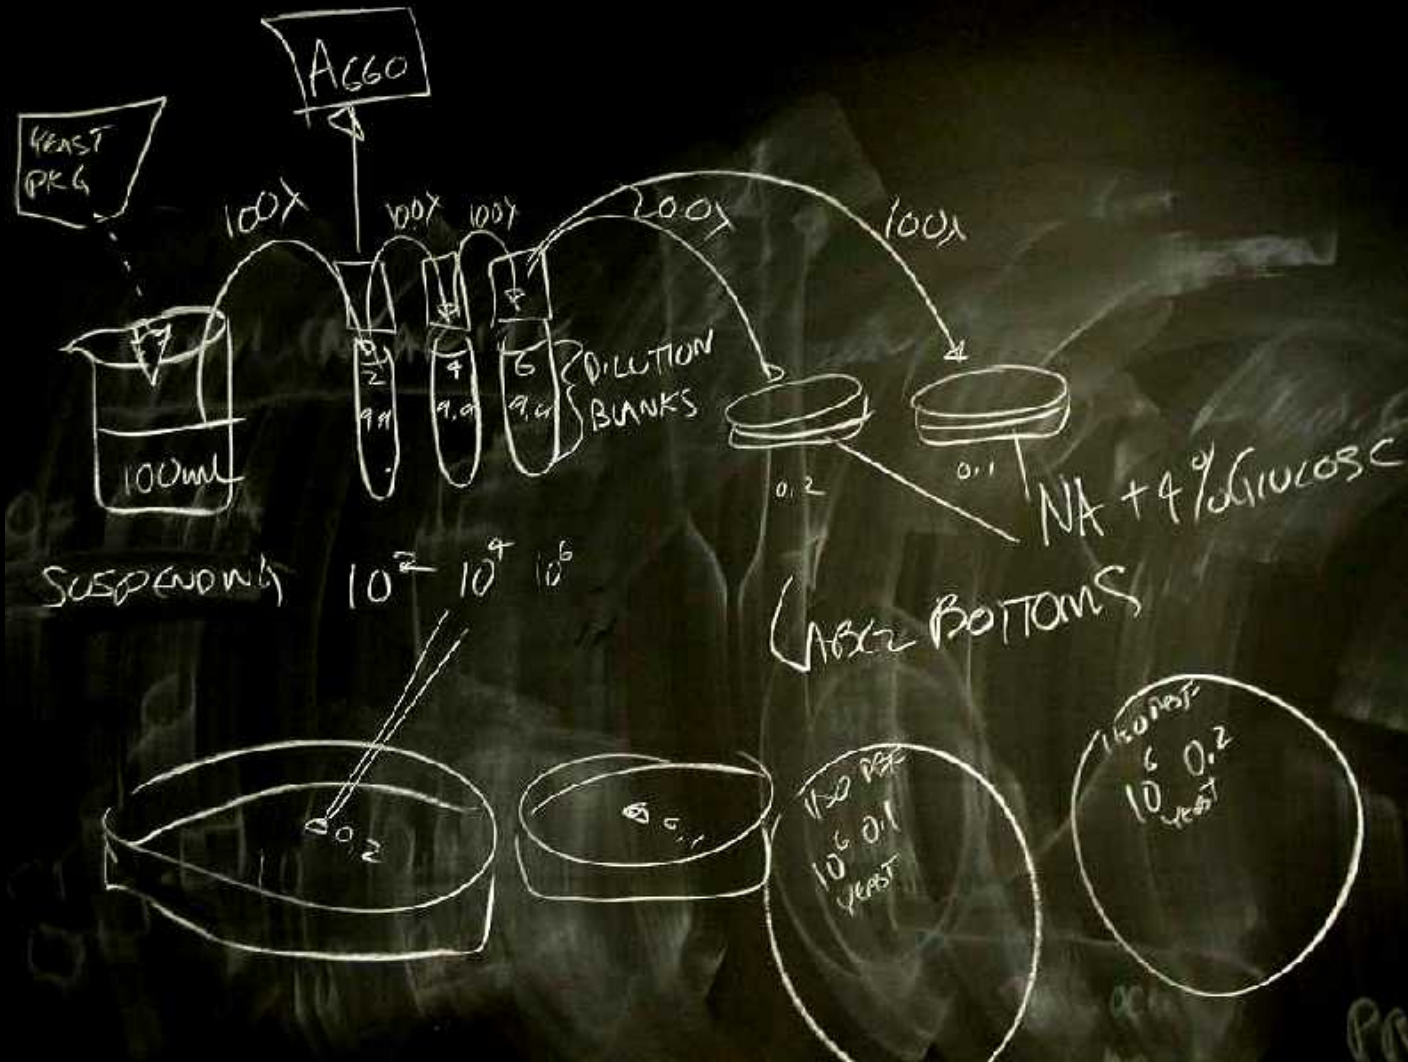 A660
YEAST
PKG
100λ
100λ
100λ
200λ
100λ
2
4
6
9.9
9.9
9.9
DILUTION
BLANKS
100mL
0.2
0.1
NA + 4% GLUCOSE
SUSPENDING
10² 10⁴ 10⁶
LABEL BOTTOMS
0.2
10⁶ 0.1
YEAST
10⁶ 0.2
YEAST